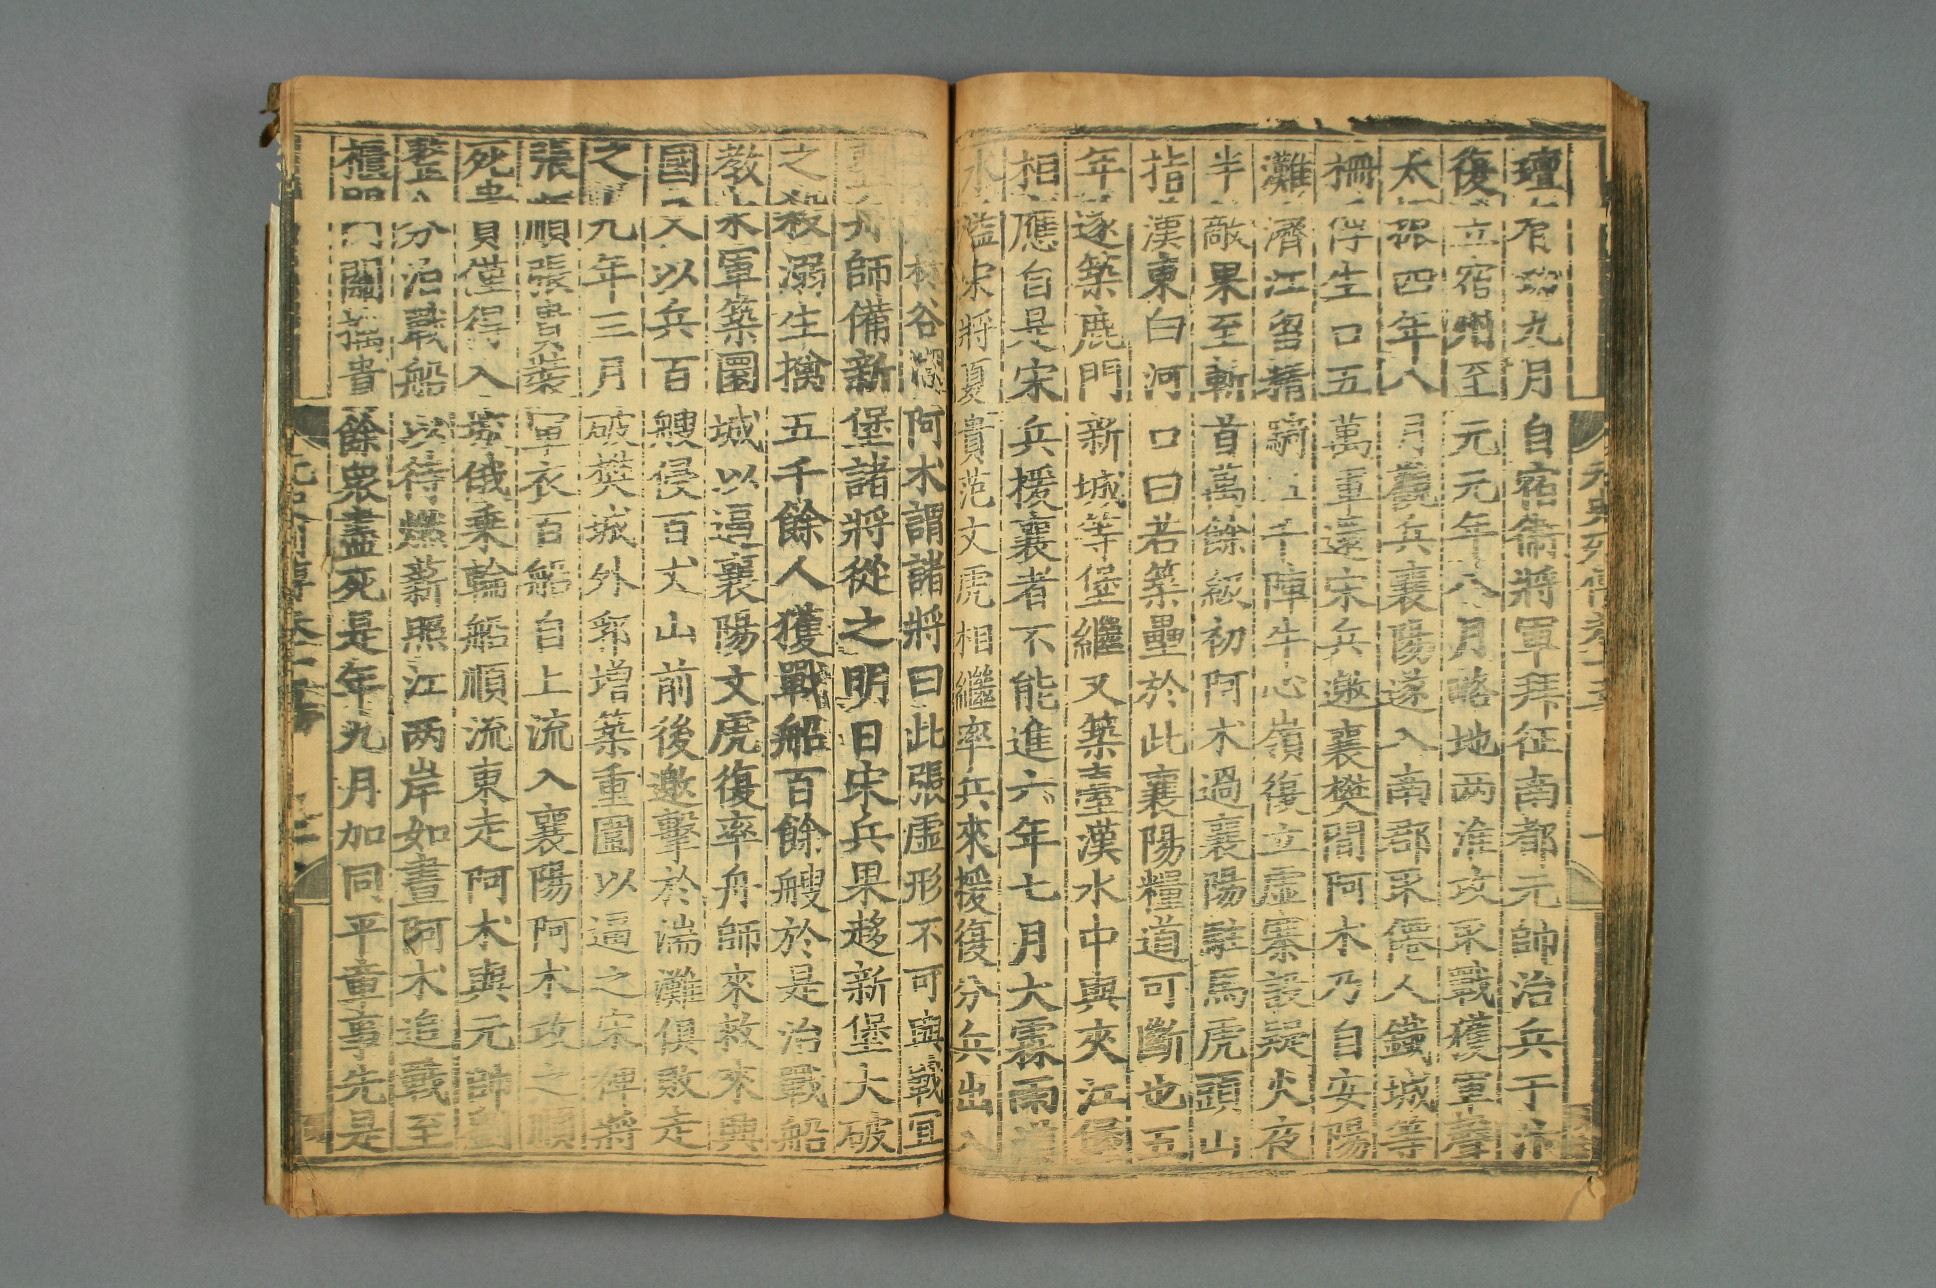 壇有功九月自宿衛將軍拜征南都元帥治兵于汴
復立宿州至元元年八月略地两淮攻取戰獲軍聲
太振四年八月觀兵襄陽遂入南郡取僊人鐵城等
柵俘生口五萬軍還宋兵邀襄樊間阿术乃自安陽
灘濟江留精騎五千陣牛心嶺復立虛寨設疑火夜
半敵果至斬首萬餘級初阿术過襄陽駐馬虎頭山
指漢東白河口曰若築壘於此襄陽糧道可斷也五
年遂築鹿門新城等堡繼又築臺漢水中與夾江堡
相應自是宋兵援襄者不能進六年七月大霖雨漢
水溢宋將夏貴范文虎相繼率兵來援復分兵出入
林谷間阿术謂諸將曰此張虛形不可與戰宜
舟師備新堡諸將從之明日宋兵果趍新堡大破
之殺溺生擒五千餘人獲戰船百餘艘於是治戰船
教水軍築圜城以逼襄陽文虎復率舟師來救來興
國又以兵百艘侵百丈山前後邀擊於湍灘俱敗走
之九年三月破樊城外郛增築重圍以逼之宋裨將
張順張貴裝軍衣百船自上流入襄陽阿术攻之順
死貴僅得入城俄乗輪船順流東走阿术與元帥劉
整分泊戰船以待燃薪照江两岸如晝阿术追戰至
櫃門關擒貴餘衆盡死是年九月加同平章事先是
元史列傳卷十五 一